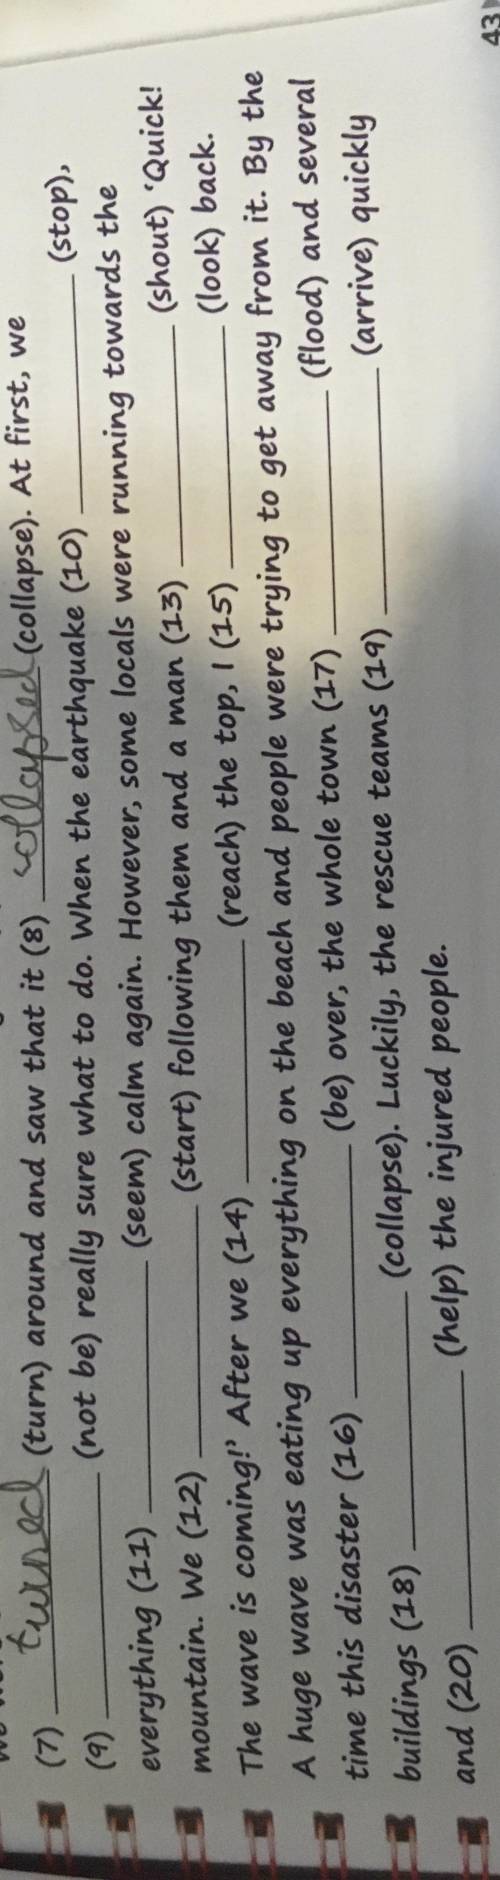 (7) turned (turn) around and saw that it (8) collapsed (collapse). At first, we
(9) ______ (not be) really sure what to do. When the earthquake (10) ______ (stop),
everything (11) ______ (seem) calm again. However, some locals were running towards the
mountain. We (12) ______ (start) following them and a man (13) ______ (shout) 'Quick!
The wave is coming!' After we (14) ______ (reach) the top, I (15) ______ (look) back.
A huge wave was eating up everything on the beach and people were trying to get away from it. By the
time this disaster (16) ______ (be) over, the whole town (17) ______ (flood) and several
buildings (18) ______ (collapse). Luckily, the rescue teams (19) ______ (arrive) quickly
and (20) ______ (help) the injured people.
43